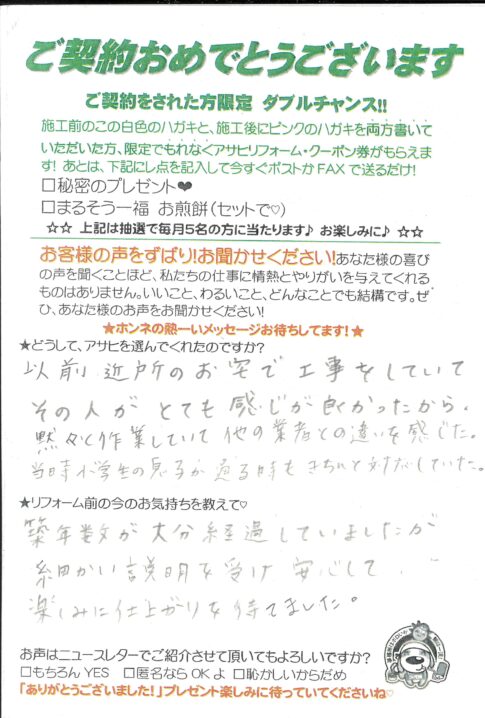 ご契約おめでとうございます
ご契約をされた方限定 ダブルチャンス!!
施工前のこの白色のハガキと、施工後にピンクのハガキを両方書いて
いただいた方、限定でもれなくアサヒリフォーム・クーポン券がもらえま
す! あとは、下記にレ点を記入して今すぐポストかFAXで送るだけ!
□秘密のプレゼント❤
□まるそう一福 お煎餅(セットで♡)
☆☆ 上記は抽選で毎月5名の方に当たります♪ お楽しみに♪ ☆☆
お客様の声をずばり!お聞かせください!あなた様の喜び
の声を聞くことほど、私たちの仕事に情熱とやりがいを与えてくれる
ものはありません。いいこと、わるいこと、どんなことでも結構です。ぜ
ひ、あなた様のお声をお聞かせください!
★ホンネの熱ーいメッセージお待ちしてます!★
★どうして、アサヒを選んでくれたのですか?
以前近所のお宅で工事をしていて
その人がとても感じが良かったから。
黙々と作業していて他の業者との違いを感じた。
当時小学生の息子が通る時もきちんと対応していた。
★リフォーム前の今のお気持ちを教えて♡
築年数が大分経過していましたが
細かい説明を受け安心して
楽しみに仕上がりを待てました。
お声はニュースレターでご紹介させて頂いてもよろしいですか?
□もちろんYES □匿名ならOKよ □恥かしいからだめ
「ありがとうございました!」プレゼント楽しみに待っていてくださいね♡